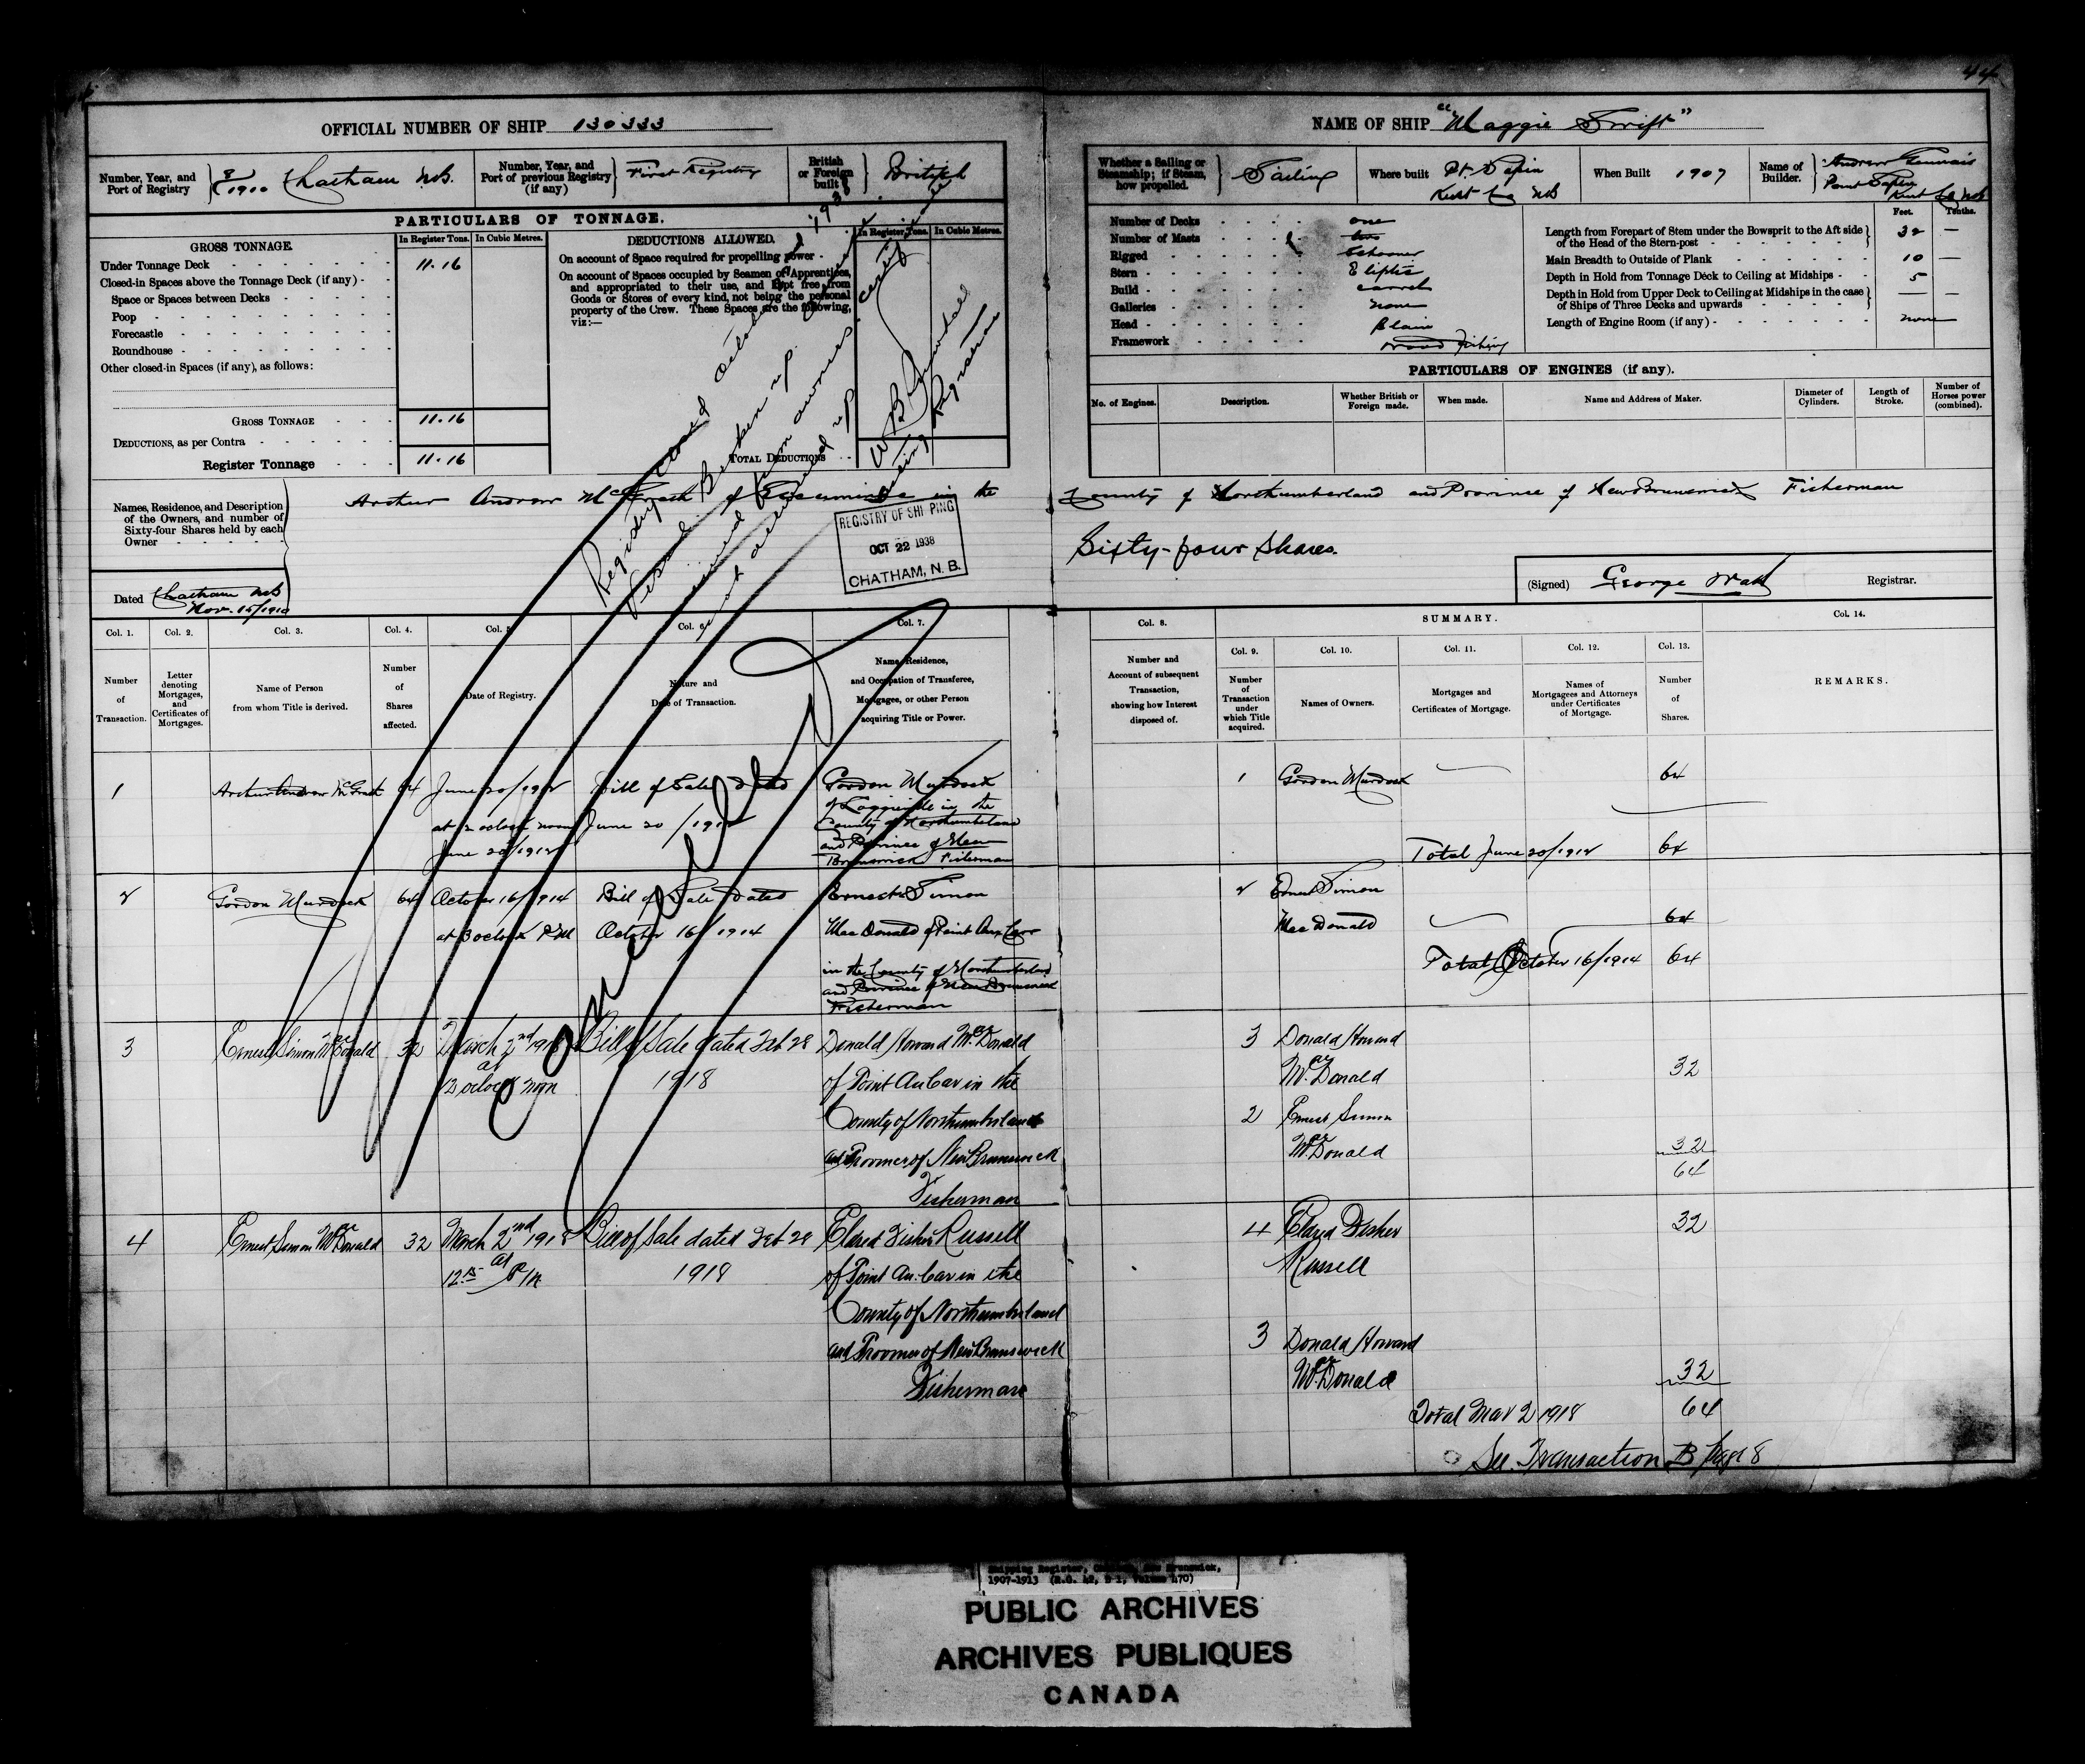 44
OFFICIAL NUMBER OF SHIP 130333
NAME OF SHIP "Maggie Swift"
Number, Year, and Port of Registry
1910 Chatham NB.
Number, Year, and Port of previous Registry (if any)
First Registry
British or Foreign built
British
Whether a Sailing or Steamship; if Steam, how propelled.
Sailing
Where built Pt. Sapin
Kent Co NB
When Built 1907
Name of Builder.
Andrew
Point Sapin
Kent Co NB
PARTICULARS OF TONNAGE.
GROSS TONNAGE.
In Register Tons. In Cubic Metres.
Under Tonnage Deck 11.16
Closed-in Spaces above the Tonnage Deck (if any)
Space or Spaces between Decks
Poop
Forecastle
Roundhouse
Other closed-in Spaces (if any), as follows:
GROSS TONNAGE 11.16
DEDUCTIONS, as per Contra
Register Tonnage 11.16
DEDUCTIONS ALLOWED.
In Register Tons. In Cubic Metres.
On account of Space required for propelling power
On account of Spaces occupied by Seamen or Apprentices,
and appropriated to their use, and kept free from
Goods or Stores of every kind, not being the personal
property of the Crew. These Spaces are the following,
viz:—
TOTAL DEDUCTIONS
Number of Decks one
Number of Masts two
Rigged Schooner
Stern Eliptic
Build carvel
Galleries none
Head Plain
Framework wood Fishing
Feet. Tenths.
Length from Forepart of Stem under the Bowsprit to the Aft side of the Head of the Stern-post 32 —
Main Breadth to Outside of Plank 10 —
Depth in Hold from Tonnage Deck to Ceiling at Midships 5
Depth in Hold from Upper Deck to Ceiling at Midships in the case of Ships of Three Decks and upwards — —
Length of Engine Room (if any) none
PARTICULARS OF ENGINES (if any).
No. of Engines. Description. Whether British or Foreign made. When made. Name and Address of Maker. Diameter of Cylinders. Length of Stroke. Number of Horses power (combined).
Names, Residence, and Description of the Owners, and number of Sixty-four Shares held by each Owner
Arthur Andrew McGrath of Escuminac in the County of Northumberland and Province of New Brunswick Fisherman
Sixty-four Shares.
Registry closed
Vessel Broken up
W B
Registrar
REGISTRY OF SHIPPING
OCT 22 1938
CHATHAM, N. B.
Dated Chatham NB
Nov. 15/1910
(Signed) George Watt Registrar.
Col. 1. Col. 2. Col. 3. Col. 4. Col. 5. Col. 6. Col. 7.
Number of Transaction.
Letter denoting Mortgages, and Certificates of Mortgages.
Name of Person from whom Title is derived.
Number of Shares affected.
Date of Registry.
Nature and Date of Transaction.
Name, Residence, and Occupation of Transferee, Mortgagee, or other Person acquiring Title or Power.
Col. 8.
Number and Account of subsequent Transaction, showing how Interest disposed of.
SUMMARY.
Col. 9. Col. 10. Col. 11. Col. 12. Col. 13. Col. 14.
Number of Transaction under which Title acquired.
Names of Owners.
Mortgages and Certificates of Mortgage.
Names of Mortgagees and Attorneys under Certificates of Mortgage.
Number of Shares.
REMARKS.
1 Arthur Andrew McGrath 64 June 20/1912 Bill of Sale dated Gordon Murdock
of Loggieville in the
at 12 oclock noon June 20/1912 County of Northumberland
June 20/1912 and Province of New
Brunswick Fisherman
1 Gordon Murdock 64
Total June 20/1912 64
2 Gordon Murdock 64 October 16/1914 Bill of Sale Dated Ernest Simon
at 3 oclock P.M October 16/1914 MacDonald of Point Aux Carr
in the County of Northumberland
and Province of New Brunswick
Fisherman
2 Ernest Simon
MacDonald 64
Total October 16/1914 64
3 Ernest Simon MacDonald 32 March 2nd 1918 Bill of Sale dated Feb 28 Donald Howard MacDonald
at
12 oclock noon 1918 of Point Au Car in the
County of Northumberland
and Province of New Brunswick
Fisherman
3 Donald Howard
MacDonald 32
2 Ernest Simon
MacDonald 32
64
4 Ernest Simon MacDonald 32 March 2nd 1918 Bill of Sale dated Feb 28 Fisher Russell
at
P M 1918 of Point Au Car in the
County of Northumberland
and Province of New Brunswick
Fisherman
4 Fisher 32
Russell
3 Donald Howard
MacDonald 32
Total Mar 2 1918 64
See Transaction B Page 8
Shipping Register, New Brunswick,
1907-1913 (R.G. 42, Volume 470)
PUBLIC ARCHIVES
ARCHIVES PUBLIQUES
CANADA